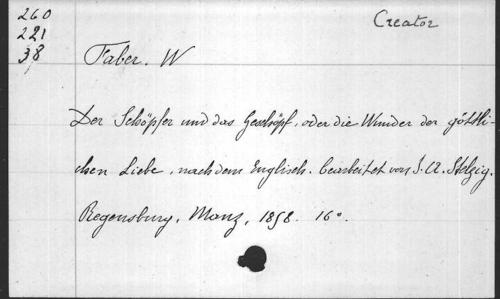 260
221
38
Creator
Faber. W
Der Schöpfer und das Geschöpf, oder die Wunder der göttli-
chen Liebe, nach dem Englisch. bearbeitet von J. A. Stelzig.
Regensburg, Manz, 1858. 16°.